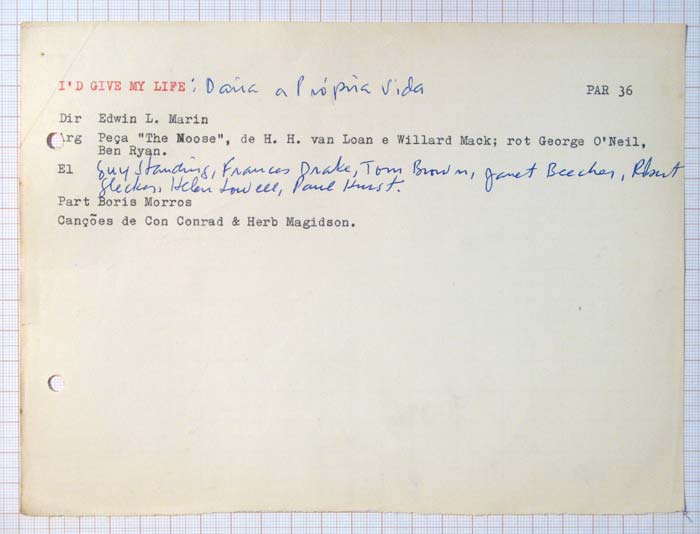 I'D GIVE MY LIFE : Daria a Própria Vida PAR 36
Dir Edwin L. Marin
Arg Peça "The Noose", de H. H. van Loan e Willard Mack; rot George O'Neil,
Ben Ryan.
El Guy Standing, Frances Drake, Tom Brown, Janet Beecher, Robert
Glecker, Helen Lowell, Paul Hurst.
Part Boris Morros
Canções de Con Conrad & Herb Magidson.